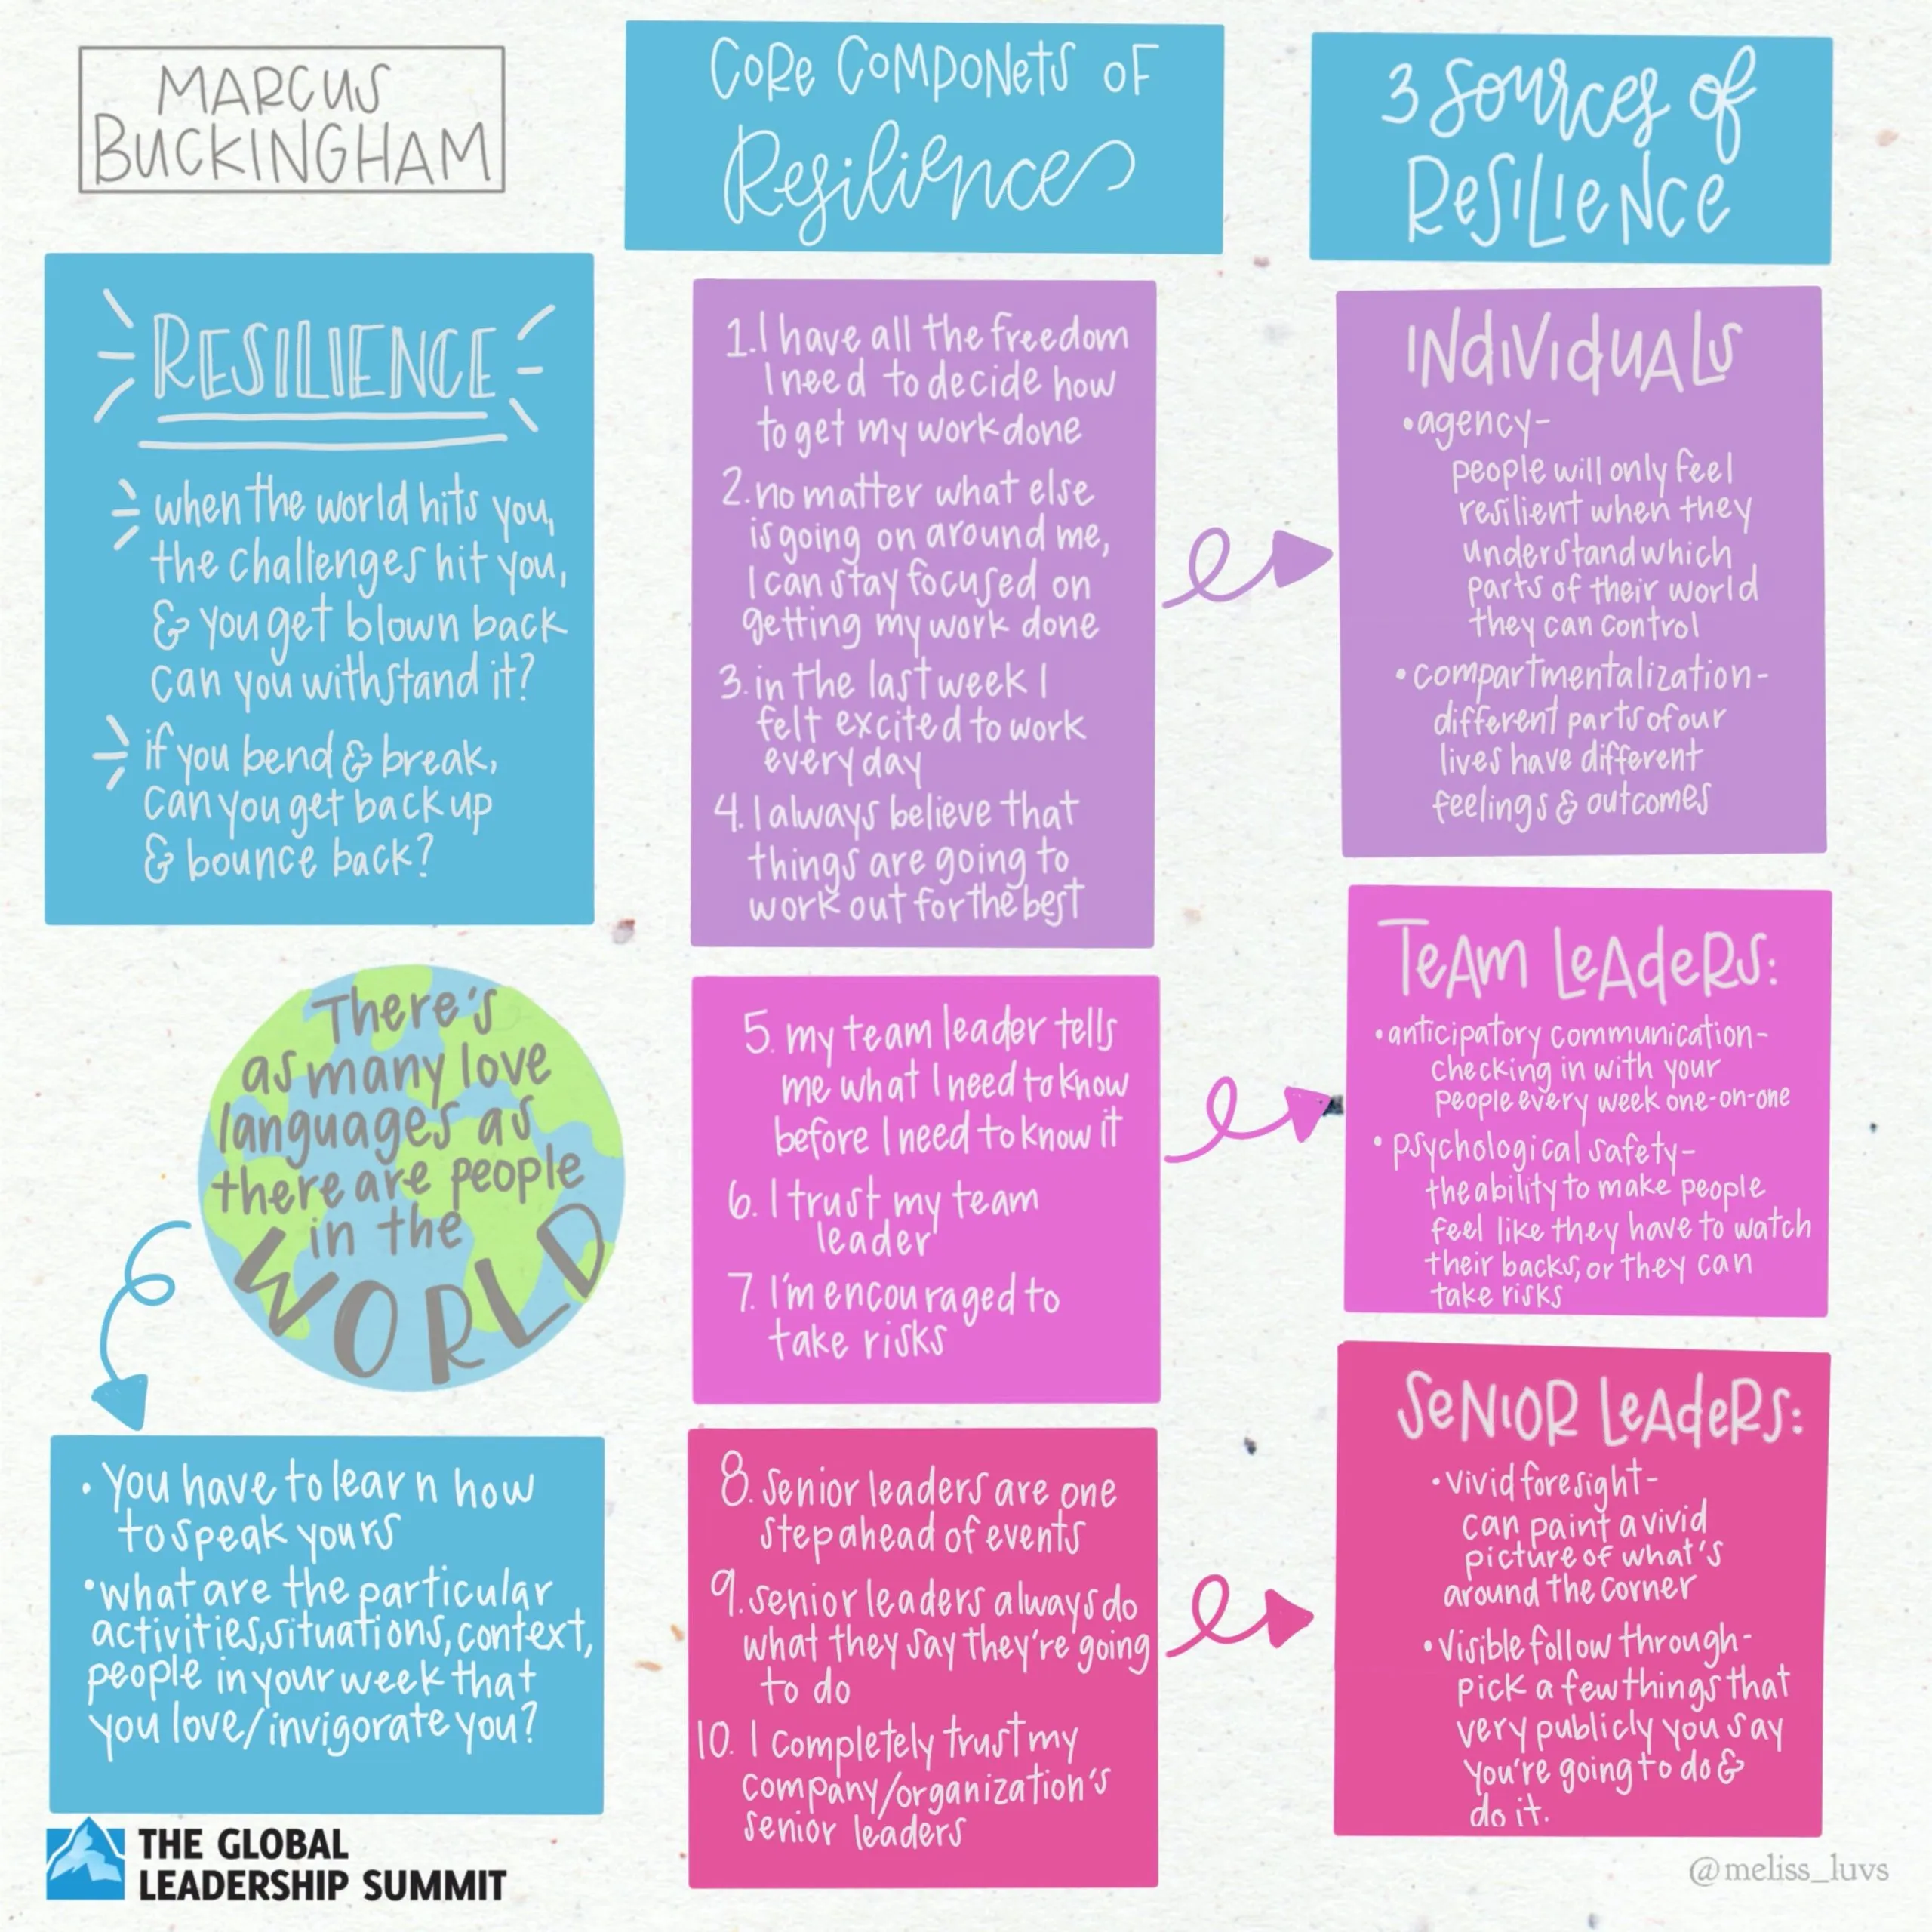 MARCUS
BUCKINGHAM
RESILIENCE
when the world hits you,
the challenges hit you,
& you get blown back
can you withstand it?
if you bend & break,
can you get back up
& bounce back?
There's
as many love
languages as
there are people
in the
WORLD
• You have to learn how
to speak yours
• what are the particular
activities, situations, context,
people in your week that
you love/invigorate you?
THE GLOBAL
LEADERSHIP SUMMIT
CORE COMPONETS OF
Resilience
1. I have all the freedom
I need to decide how
to get my work done
2. no matter what else
is going on around me,
I can stay focused on
getting my work done
3. in the last week I
felt excited to work
every day
4. I always believe that
things are going to
work out for the best
5. my team leader tells
me what I need to know
before I need to know it
6. I trust my team
leader
7. I'm encouraged to
take risks
8. Senior leaders are one
step ahead of events
9. senior leaders always do
what they say they're going
to do
10. I completely trust my
company/organization's
senior leaders
3 Sources of
RESILIENCE
INDIVIDUALS
• agency-
people will only feel
resilient when they
understand which
parts of their world
they can control
• compartmentalization-
different parts of our
lives have different
feelings & outcomes
TEAM LEADERS:
• anticipatory communication-
checking in with your
people every week one-on-one
• psychological safety-
the ability to make people
feel like they have to watch
their backs, or they can
take risks
SENIOR LEADERS:
• vivid foresight-
can paint a vivid
picture of what's
around the corner
• Visible follow through-
pick a few things that
very publicly you say
you're going to do &
do it.
@meliss_luvs